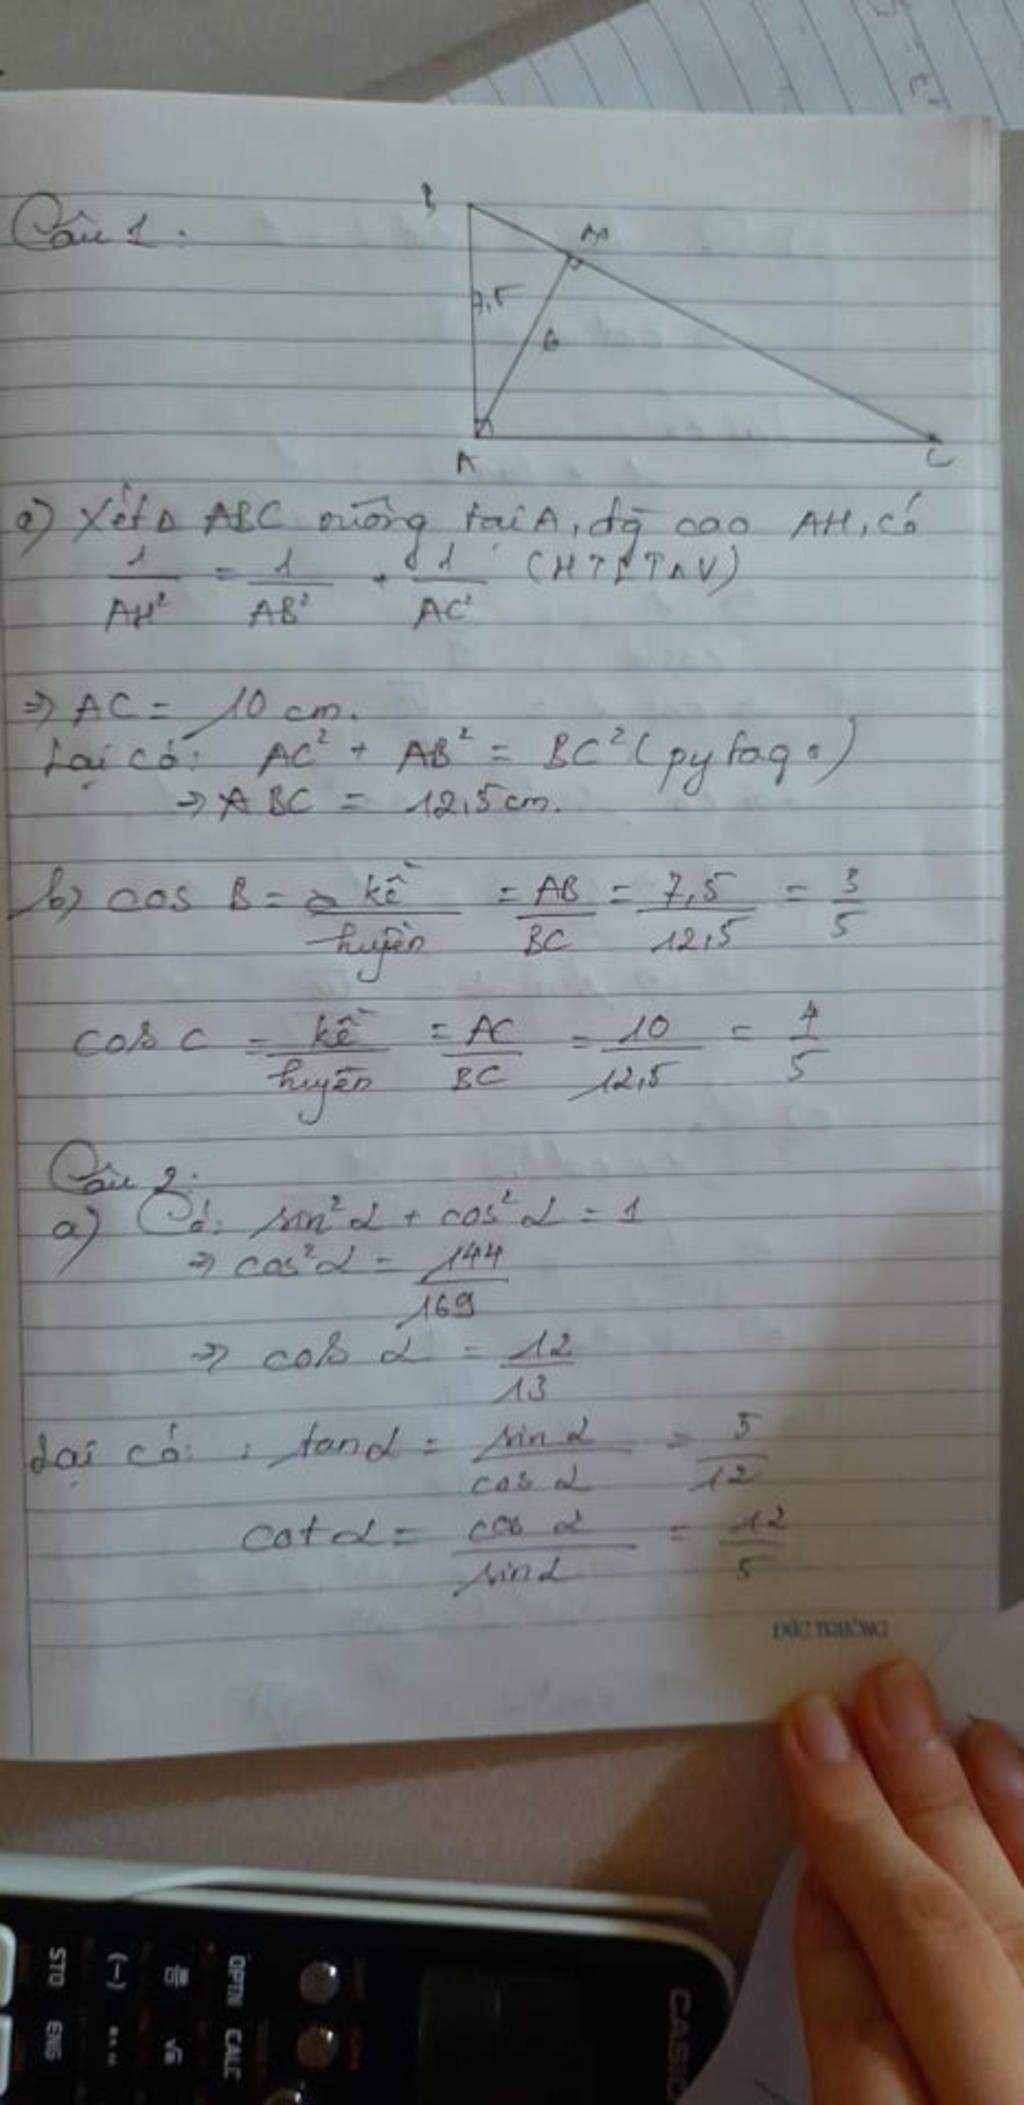 Câu 1:
B
M
7,5
6
A
C
a) Xét Δ ABC vuông tại A, đg cao AH, có
1/AH² = 1/AB² + 1/AC² (HTLTΔV)
⇒ AC = 10 cm.
Lại có: AC² + AB² = BC² (pytago)
⇒ BC = 12,5 cm.
b) cos B = kề/huyền = AB/BC = 7,5/12,5 = 3/5
cos C = kề/huyền = AC/BC = 10/12,5 = 4/5
Câu 2:
a) Có: sin²α + cos²α = 1
⇒ cos²α = 144/169
⇒ cos α = 12/13
Lại có: : tanα = sin α/cos α = 5/12
cot α = cos α/sin α = 12/5
CASIO
OPTN CALC
(-)
STO ENG